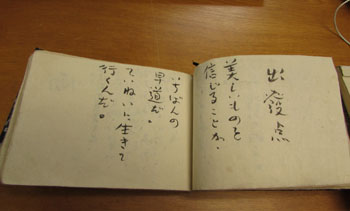 出発点
美しいものを
信じることが、
いちばんの
早道だ。
ていねいに生きて
行くんだ。